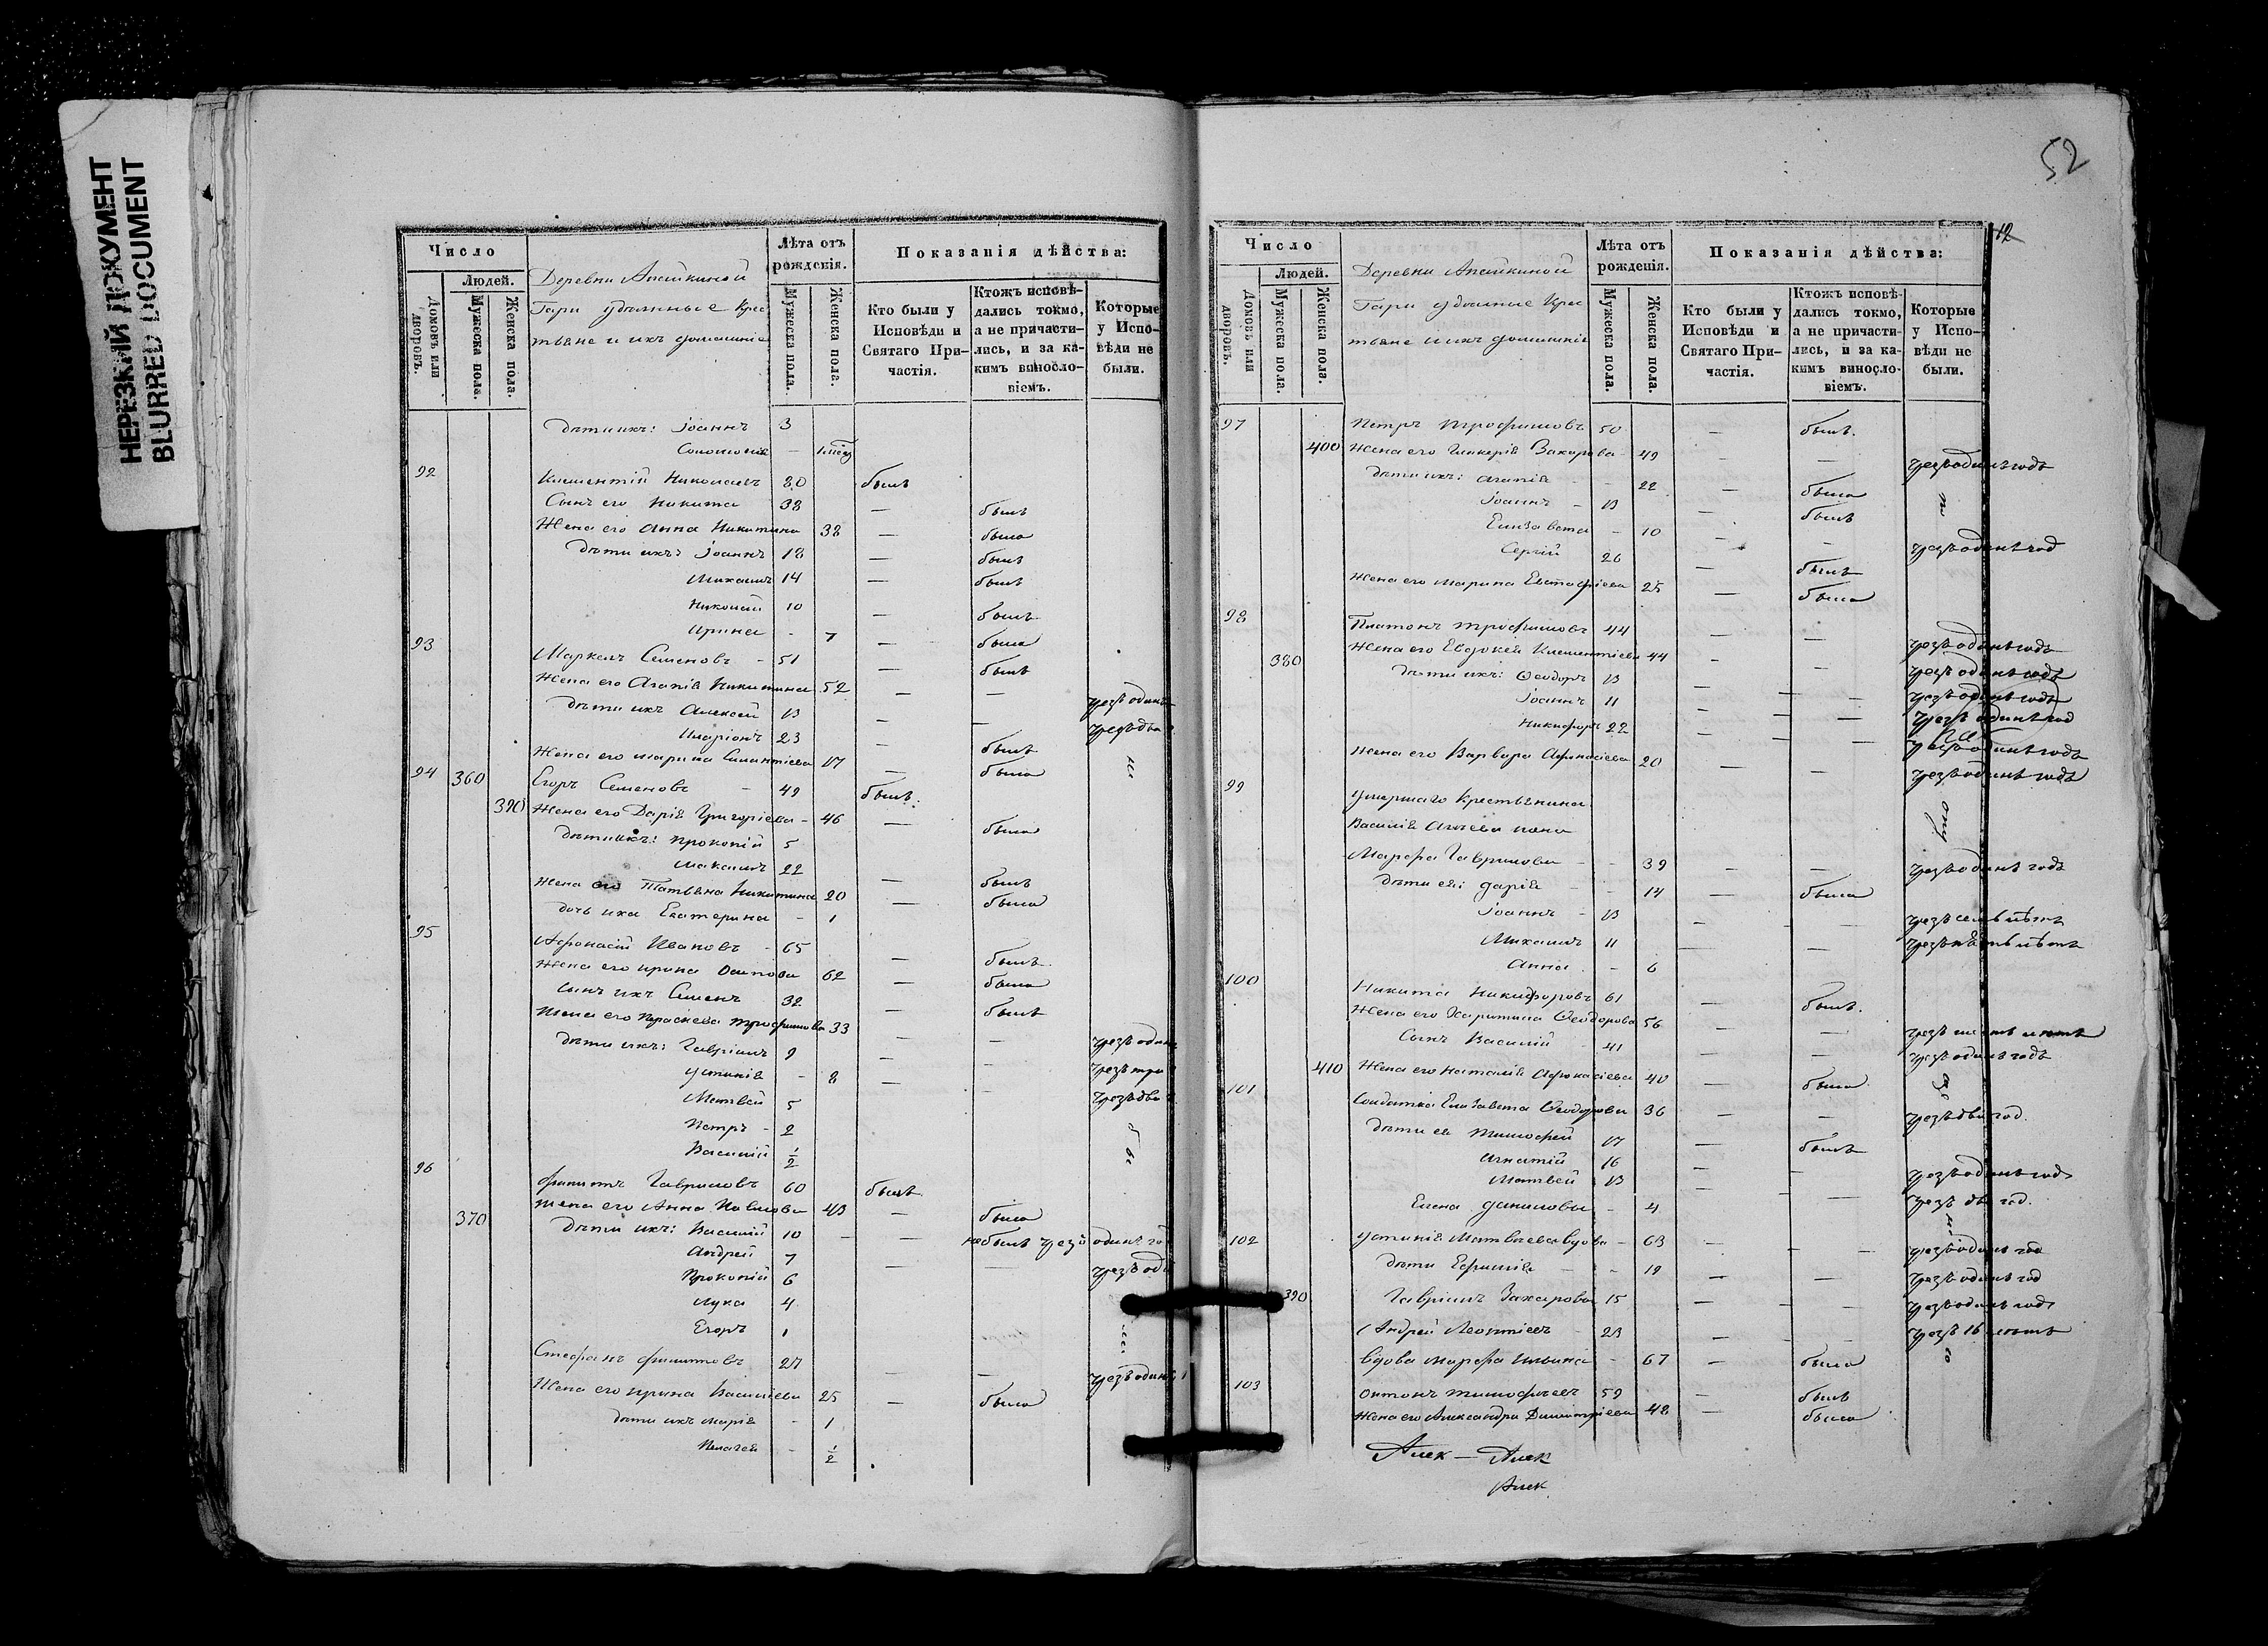 НЕРЕЗКИЙ ДОКУМЕНТ
BLURRED DOCUMENT
Число
Людей.
Домовъ или дворовъ.
Мужеска пола.
Женска пола.
Деревни Апайкиной
Гари удѣльные крес
тьяне и ихъ домашніе
Лѣта отъ рожденія.
Мужеска пола.
Женска пола.
Показанія дѣйства:
Кто были у Исповѣди и Святаго При-частія.
Ктожъ исповѣ-дались токмо, а не причасти-лись, и за ка-кимъ винословіемъ.
Которые у Испо-вѣди не были.
дѣти ихъ: Іоаннъ 3
Соломонія –
92 Климентій Николаевъ 80 былъ
Сынъ его Никита 38 — былъ
Жена его Анна Никитина 38 — была
дѣти ихъ: Іоаннъ 18 — былъ
Михаилъ 14 — былъ
Николай 10 — былъ
Ирина - 7 — была
93 Маркелъ Семеновъ - 51 — былъ
Жена его Агапія Никитина 52 — — чрезъ одинъ
дѣти ихъ Алексей 13 — — чрезъ два
Иларіонъ 23 — былъ
Жена его Марина 17 — была
94 360 Егоръ Семеновъ - 49 былъ.
390 Жена его Дарія Григоріева - 46 — была
дѣти ихъ: Прокопій 5
Максимъ 22 — былъ
Жена его Татьяна Никитина 20 — была
дочь ихъ Екатерина - 1
95 Афонасій Ивановъ - 65 — былъ
Жена его Ирина Осипова 62 — была
Сынъ ихъ Семенъ 32 — былъ
Жена его Праскева Трофимова 33 — — чрезъ один
дѣти ихъ: Гавріилъ 9 — — чрезъ три
Устинія - 8 — — чрезъ два
Матвей 5
Петръ - 2
Василий ½
96 Филипъ Гавриловъ 60 былъ
Жена его Анна Павлова 43 — была
370 дѣти ихъ: Василий 10 - — небылъ чрезъ одинъ го
Андрей 7 — — чрезъ оди
Прокопій 6
Лука 4
Егоръ 1
Стефанъ Филиповъ 27 — — чрезъ одинъ
Жена его Ирина Василіева 25 — была
дѣти ихъ Марія - 1
Пелагея - ½
52
12
Число
Людей.
Домовъ или дворовъ.
Мужеска пола.
Женска пола.
Деревни Апайкиной
Гари удѣльные крес
тьяне и ихъ домашніе
Лѣта отъ рожденія.
Мужеска пола.
Женска пола.
Показанія дѣйства:
Кто были у Исповѣди и Святаго При-частія.
Ктожъ исповѣ-дались токмо, а не причасти-лись, и за ка-кимъ винословіемъ.
Которые у Испо-вѣди не были.
97 Петръ Трофимовъ 50 — былъ.
400 Жена его Гликерія Захарова 49 — — чрезъ одинъ годъ
дѣти ихъ: Агапія - - 22 — была
Іоаннъ - 13 — былъ
Елизавета - 10 — — чрезъ одинъ год
Сергій 26 — былъ
Жена его Марина Евстафіева 25 — была
98 Платонъ Трофимовъ 44 — — чрезъ одинъ годъ
380 Жена его Евдокея Климентіева 44 — — чрезъ одинъ годъ
дѣти ихъ: Ѳеодоръ 13 — — чрезъ одинъ годъ
Іоаннъ 11 — — чрезъ одинъ год
Никифоръ 22 — — чрезъ одинъ годъ
Жена его Варвара Афанасіева 20 — — чрезъ одинъ годъ
99 Умершаго крестьянина
Василія жена
Марфа Гаврилова - - 39 — — чрезъ одинъ годъ
дѣти ея: Дарія - - 14 — была
Іоаннъ - 13 — — чрезъ семь лѣтъ
Михаилъ 11 — — чрезъ пять лѣтъ
Анна - 6
100 Никита Никифоровъ 61 — былъ.
Жена его Харитина Ѳеодорова 56 — — чрезъ шесть лѣтъ
Сынъ Василий - 41 — — чрезъ одинъ годъ
410 Жена его Наталія Афонасіева 40 — была
101 Солдатка Елизавета Ѳеодорова 36 — — чрезъ два год
дѣти ея Тимофей 17 — былъ
Игнатій 16 — — чрезъ одинъ годъ
Матвей 13 — — чрезъ два год.
Елена Данилова - 4
102 Устинія Матвѣева вдова - 63 — — чрезъ одинъ год
дѣти Ефимія - - 19 — — чрезъ одинъ год
390 Гавріилъ Захаровъ 15 — — чрезъ одинъ годъ
Андрей Леонтіевъ - 23 — — чрезъ 16 лѣтъ
Вдова Марфа Ильина - 67 — была
103 Антонъ Тимофѣевъ 59 былъ
Жена его Александра Димитріева 48 — была
Алек — Алек
Алек